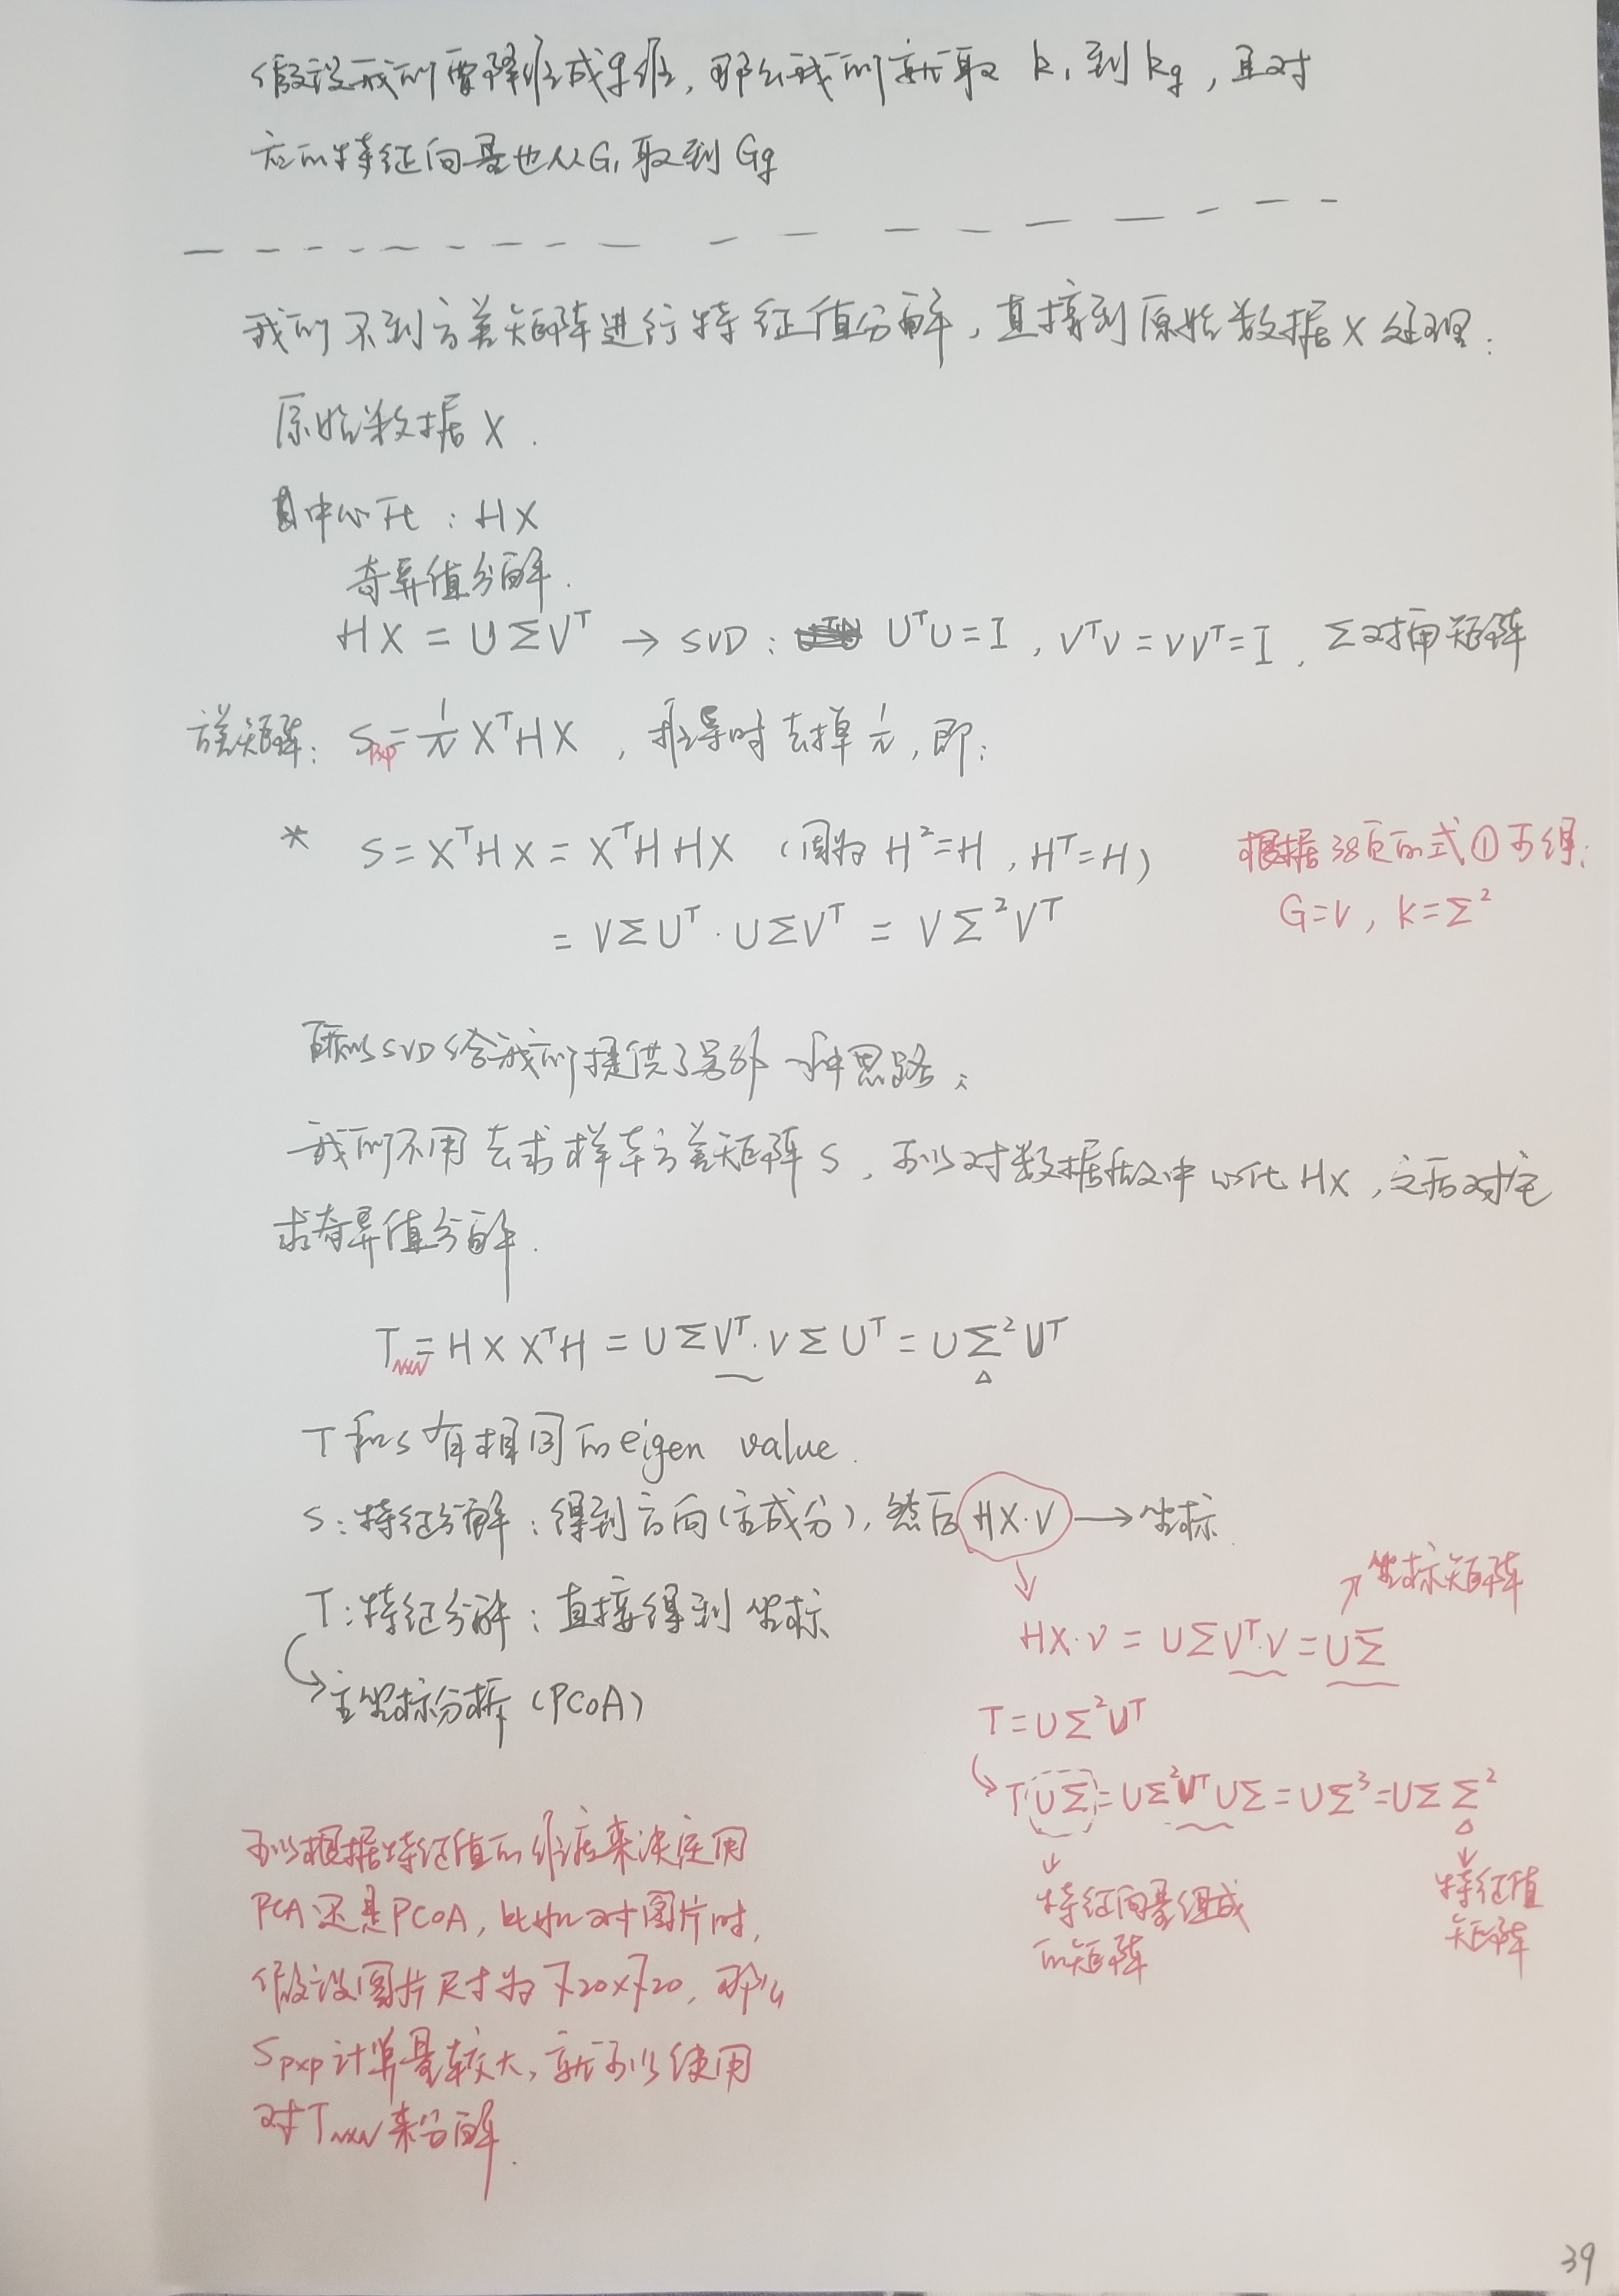 假设我们要降维成q维，那么我们就取 k₁ 到 kq，且对
应的特征向量也从G₁取到Gq
我们不到方差矩阵进行特征值分解，直接到原始数据X处理：
原始数据X.
中心化：HX
奇异值分解.
HX = UΣVᵀ → SVD： UᵀU=I，VᵀV=VVᵀ=I，Σ对角矩阵
方差矩阵：Sp×p=1/N XᵀHX，推导时去掉 1/N，即：
* S=XᵀHX=XᵀHHX （因为H²=H，Hᵀ=H）
根据38页的式①可得：
G=V，K=Σ²
= VΣUᵀ·UΣVᵀ = VΣ²Vᵀ
所以SVD给我们提供了另外一种思路；
我们不用去求样本方差矩阵S，可以对数据做中心化HX，之后对它
求奇异值分解.
TN×N=HXXᵀH=UΣVᵀ·VΣUᵀ=UΣ²Uᵀ
T和S有相同的eigen value.
S：特征分解：得到方向（主成分），然后HX·V→坐标
T：特征分解：直接得到坐标
主坐标分析（PCoA）
坐标矩阵
HX·V=UΣVᵀ·V=UΣ
T=UΣ²Uᵀ
TUΣ=UΣ²UᵀUΣ=UΣ³=UΣΣ²
特征向量组成
的矩阵
特征值
矩阵
可以根据特征值的维度来决定用
PCA还是PCoA，比如对图片时，
假设图片尺寸为720×720，那么
Sp×p计算量较大，就可以使用
对TN×N来分解.
39